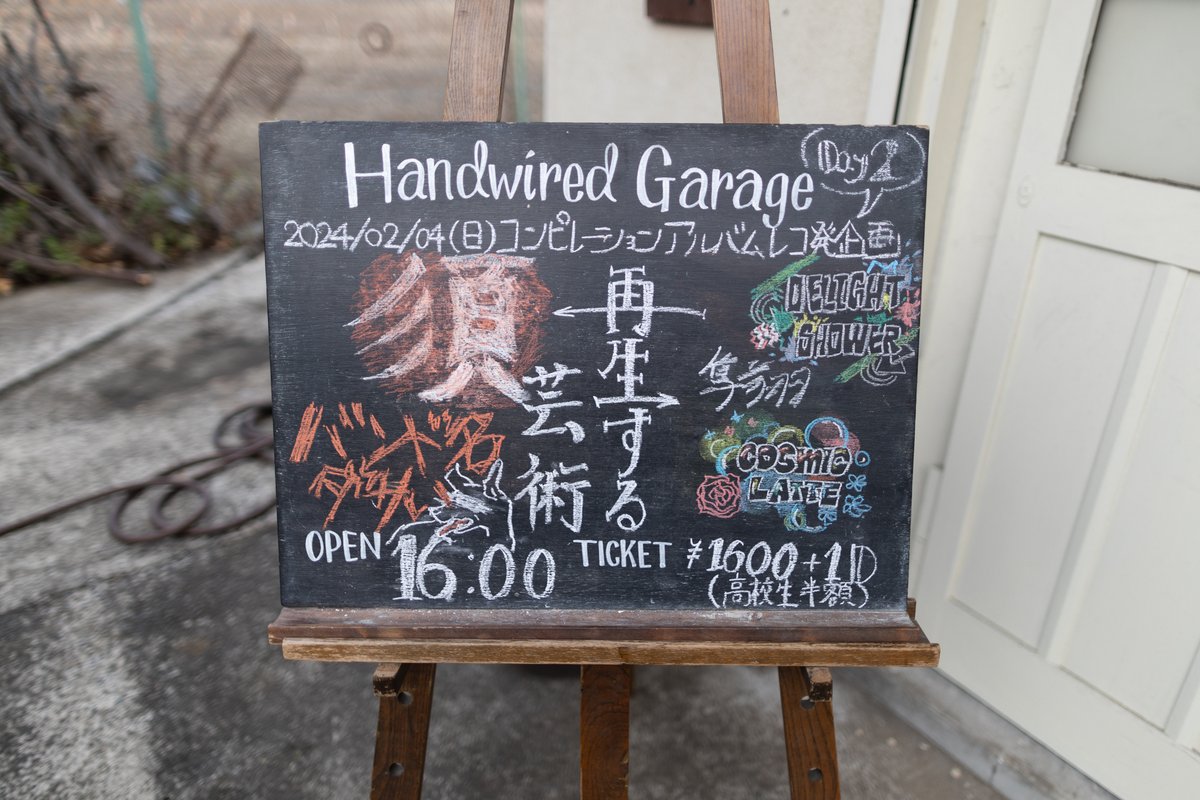 Handwired Garage
Day 2
2024/02/04(日)コンピレーションアルバムレコ発企画
須
再生する
芸術
DELIGHT
SHOWER
バンド名
COSMIC
LATTE
OPEN 16:00
TICKET ¥1600+1D
(高校生半額)